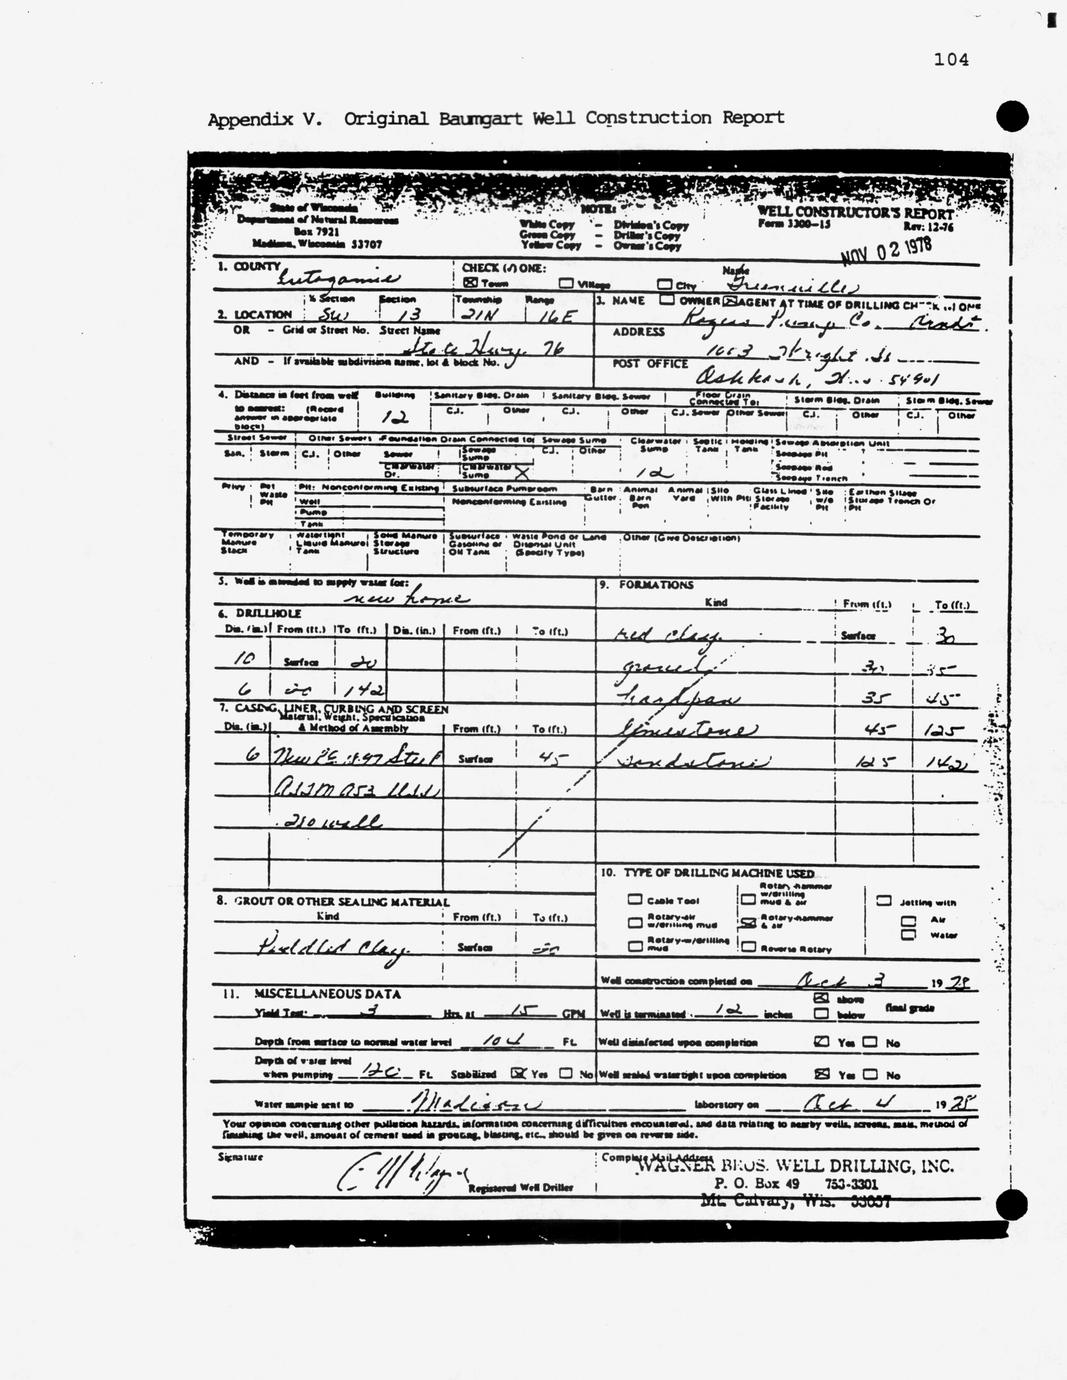 104
Appendix V. Original Baumgart Well Construction Report
State of Wisconsin
Department of Natural Resources
Box 7921
Madison, Wisconsin 53707
NOTE:
White Copy – Division's Copy
Green Copy – Driller's Copy
Yellow Copy – Owner's Copy
WELL CONSTRUCTOR'S REPORT
Form 3300-15 Rev: 12-76
NOV 02 1978
1. COUNTY Outagamie CHECK (✓) ONE: Town Village City Name Greenville
2. LOCATION ¼ Section SW Section 13 Township 21N Range 16E
3. NAME OWNER AGENT AT TIME OF DRILLING CHECK ONE
Pump Co.
OR – Grid or Street No. Street Name State Hwy. 76
ADDRESS
AND – If available subdivision name, lot & block No.
POST OFFICE Oshkosh, 54901
4. Distance in feet from well to nearest: (Record answer in appropriate block)
Building 12 Sanitary Bldg. Drain C.I. Other Sanitary Bldg. Sewer C.I. Other Floor Drain Connected To: C.I. Sewer Other Sewer Storm Bldg. Drain C.I. Other Storm Bldg. Sewer C.I. Other
Street Sewer San. Storm Other Sewers C.I. Other Foundation Drain Connected to: Sewer Clearwater Dr. Sewage Sump Clearwater Sump X Sewage Sump C.I. Other Clearwater Sump 12 Septic Tank Holding Tank Sewage Absorption Unit Seepage Pit Seepage Bed Seepage Trench
Privy Pet Waste Pit Pit: Nonconforming Existing Well Pump Tank Subsurface Pumproom Nonconforming Existing Barn Gutter Animal Barn Pen Animal Yard Silo With Pit Glass Lined Storage Facility Silo w/o Pit Earthen Silage Storage Trench Or Pit
Temporary Manure Stack Watertight Liquid Manure Tank Solid Manure Storage Structure Subsurface Gasoline or Oil Tank Waste Pond or Land Disposal Unit (Specify Type) Other (Give Description)
5. Well is intended to supply water for: new home
6. DRILLHOLE
Dia. (in.) From (ft.) To (ft.) Dia. (in.) From (ft.) To (ft.)
10 Surface 20
6 20 142
7. CASING, LINER, CURBING AND SCREEN
Dia. (in.) Material, Weight, Specification & Method of Assembly From (ft.) To (ft.)
6 New 18.97 Steel Surface 45
ASTM A53
.210 wall
8. GROUT OR OTHER SEALING MATERIAL
Kind From (ft.) To (ft.)
Puddled Clay Surface 20
9. FORMATIONS
Kind From (ft.) To (ft.)
red clay Surface 30
gravel 30 35
hardpan 35 45
limestone 45 125
sandstone 125 142
10. TYPE OF DRILLING MACHINE USED
Cable Tool
Rotary-air w/drilling mud
Rotary-w/drilling mud
Rotary-hammer w/drilling mud & air
Rotary-hammer & air
Reverse Rotary
Jetting with
Air
Water
Well construction completed on Oct 3 1978
11. MISCELLANEOUS DATA
Yield Test: 3 Hrs. at 15 GPM
Well is terminated 12 inches above below final grade
Depth from surface to normal water level 104 Ft.
Well disinfected upon completion Yes No
Depth of water level when pumping 120 Ft. Stabilized Yes No
Well sealed watertight upon completion Yes No
Water sample sent to Madison laboratory on Oct 4 1978
Your opinion concerning other pollution hazards, information concerning difficulties encountered, and data relating to nearby wells, screens, seals, method of
finishing the well, amount of cement used in grouting, blasting, etc., should be given on reverse side.
Signature
Registered Well Driller
Complete Mail Address
WAGNER BROS. WELL DRILLING, INC.
P. O. Box 49 753-3301
Mt. Calvary, Wis. 53057